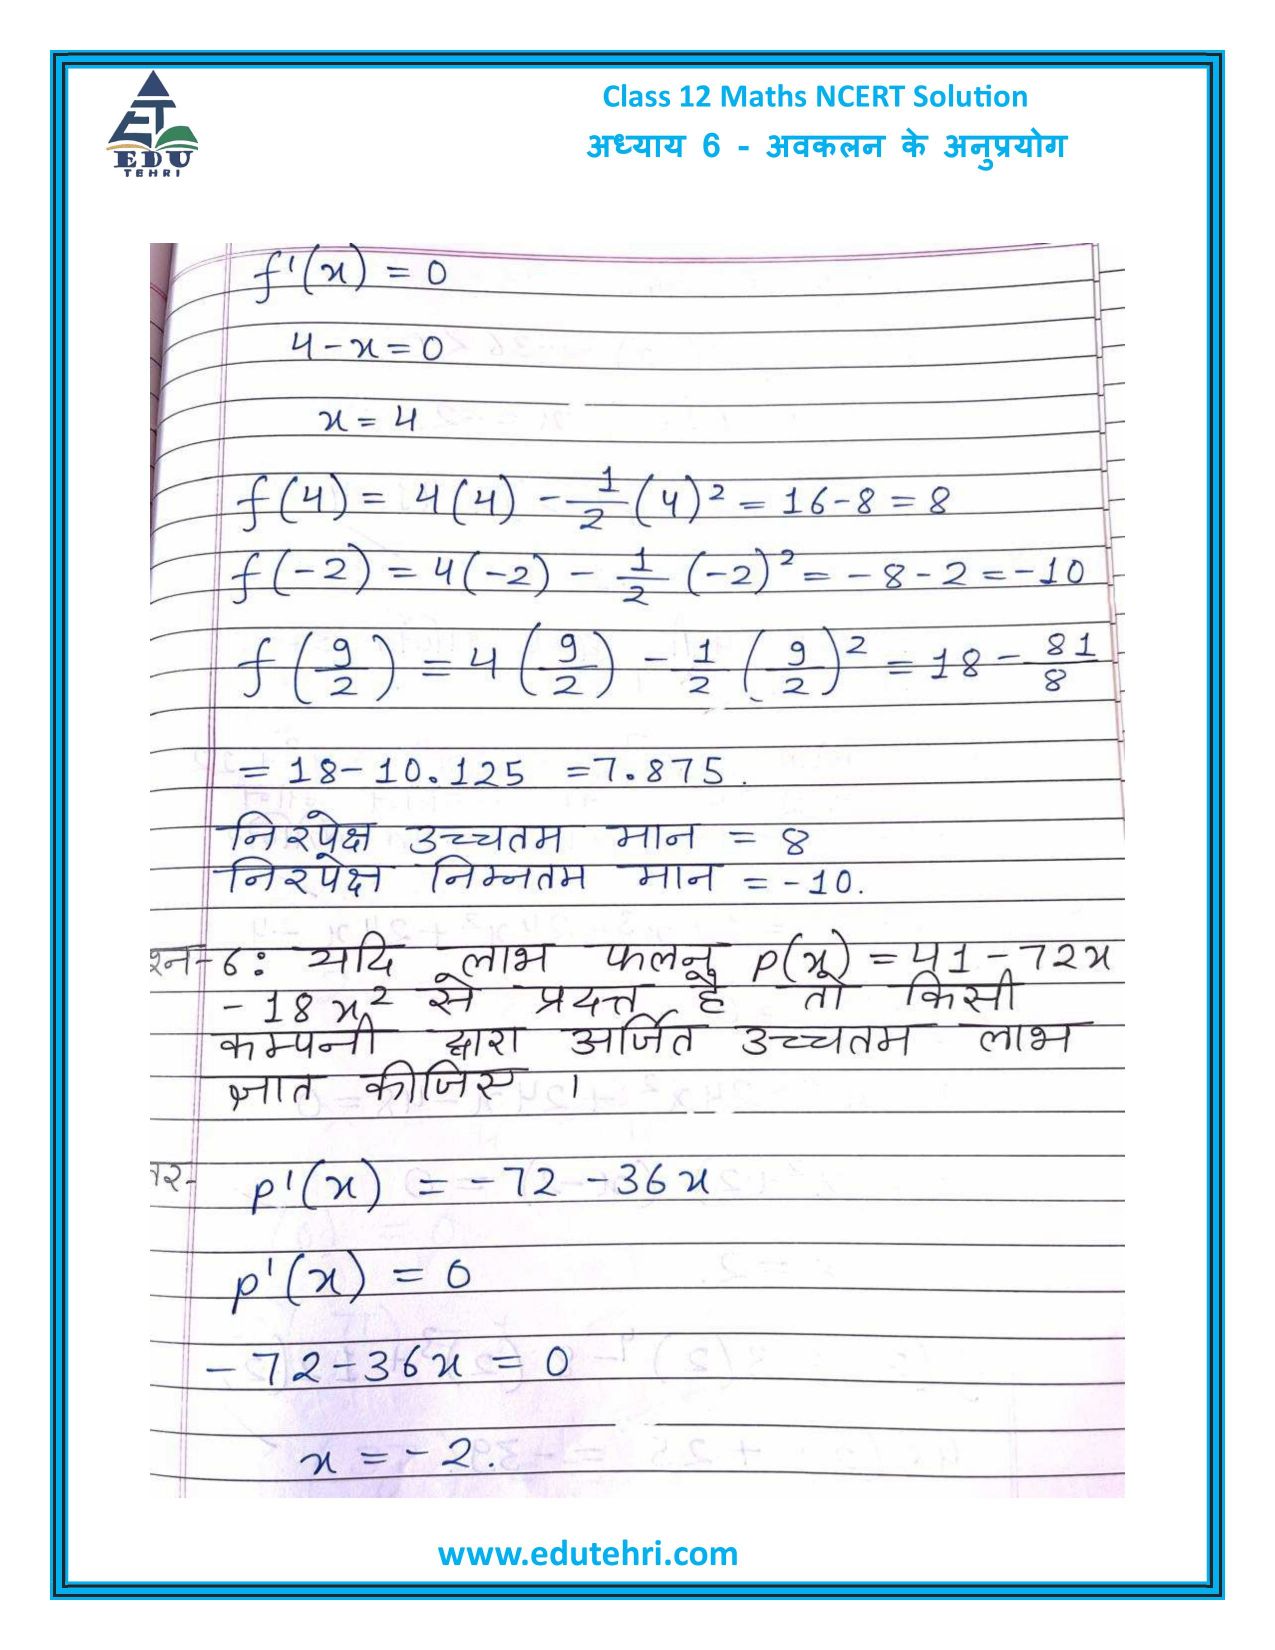 EDU
TEHRI
Class 12 Maths NCERT Solution
अध्याय 6 - अवकलन के अनुप्रयोग
f'(x) = 0
4-x=0
x=4
f(4) = 4(4) - 1/2 (4)² = 16-8 = 8
f(-2) = 4(-2) - 1/2 (-2)² = -8-2 = -10
f(9/2) = 4(9/2) - 1/2 (9/2)² = 18 - 81/8
= 18-10.125 =7.875.
निरपेक्ष उच्चतम मान = 8
निरपेक्ष निम्नतम मान = -10.
श्न-6: यदि लाभ फलन p(x) = 41-72x
-18x² से प्रदत्त है तो किसी
कम्पनी द्वारा अर्जित उच्चतम लाभ
ज्ञात कीजिए ।
तर- p'(x) = -72-36x
p'(x) = 0
-72-36x = 0
x = -2.
www.edutehri.com